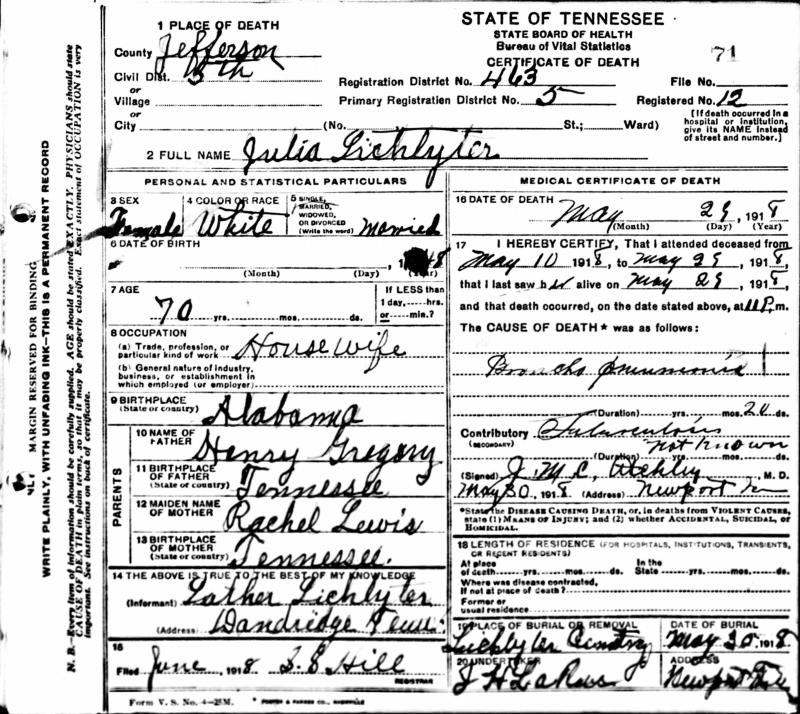 1 PLACE OF DEATH
County Jefferson
Civil Dist. 5th
or
Village
or
City (No. St.; Ward)
STATE OF TENNESSEE
STATE BOARD OF HEALTH
Bureau of Vital Statistics
CERTIFICATE OF DEATH
71
Registration District No. 463 File No.
Primary Registration District No. 5 Registered No. 12
[If death occurred in a
hospital or institution,
give its NAME instead
of street and number.]
2 FULL NAME Julia Lichlyter
PERSONAL AND STATISTICAL PARTICULARS
3 SEX
Female
4 COLOR OR RACE
White
5 SINGLE,
MARRIED,
WIDOWED,
OR DIVORCED
(Write the word) Married
6 DATE OF BIRTH
48
(Month) (Day) (Year)
7 AGE
70 yrs. mos. ds.
If LESS than
1 day,....hrs.
or.....min.?
8 OCCUPATION
(a) Trade, profession, or
particular kind of work House wife
(b) General nature of industry,
business, or establishment in
which employed (or employer)
9 BIRTHPLACE
(State or country) Alabama
PARENTS
10 NAME OF
FATHER Henry Gregory
11 BIRTHPLACE
OF FATHER
(State or country) Tennessee
12 MAIDEN NAME
OF MOTHER Rachel Lewis
13 BIRTHPLACE
OF MOTHER
(State or country) Tennessee.
14 THE ABOVE IS TRUE TO THE BEST OF MY KNOWLEDGE
(Informant) Lichlyter
(Address) Dandridge Tenn.
15
Filed June 1918 Hill
REGISTRAR
MEDICAL CERTIFICATE OF DEATH
16 DATE OF DEATH
May 29, 1918
(Month) (Day) (Year)
17 I HEREBY CERTIFY, That I attended deceased from
May 10 1918, to May 29, 1918,
that I last saw her alive on May 29, 1918,
and that death occurred, on the date stated above, at 11 P.m.
The CAUSE OF DEATH* was as follows:
Broncho pneumonia
(Duration) yrs. mos. 20 ds.
Contributory Tuberculosis
(SECONDARY) not known
(Duration) yrs. mos. ds.
(Signed) J. M. C. M. D.
May 30, 1918 (Address) Newport
*State the DISEASE CAUSING DEATH, or, in deaths from VIOLENT CAUSES,
state (1) MEANS OF INJURY; and (2) whether ACCIDENTAL, SUICIDAL, or
HOMICIDAL.
18 LENGTH OF RESIDENCE (FOR HOSPITALS, INSTITUTIONS, TRANSIENTS,
OR RECENT RESIDENTS)
At place
of death yrs. mos. ds.
In the
State yrs. mos. ds.
Where was disease contracted,
If not at place of death?
Former or
usual residence
19 PLACE OF BURIAL OR REMOVAL
Lichlyter
DATE OF BURIAL
May 30, 1918
20 UNDERTAKER
J H
ADDRESS
Newport
Form V. S. No. 4—25M.
MARGIN RESERVED FOR BINDING
WRITE PLAINLY, WITH UNFADING INK—THIS IS A PERMANENT RECORD
N. B.—Every item of information should be carefully supplied. AGE should be stated EXACTLY. PHYSICIANS should state
CAUSE OF DEATH in plain terms, so that it may be properly classified. Exact statement of OCCUPATION is very
important. See instructions on back of certificate.